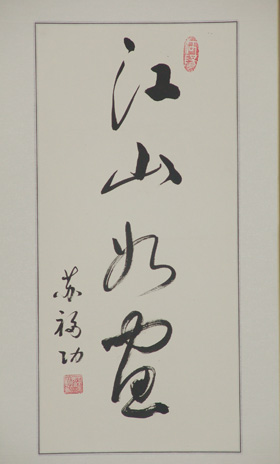 江山如画
苏福功